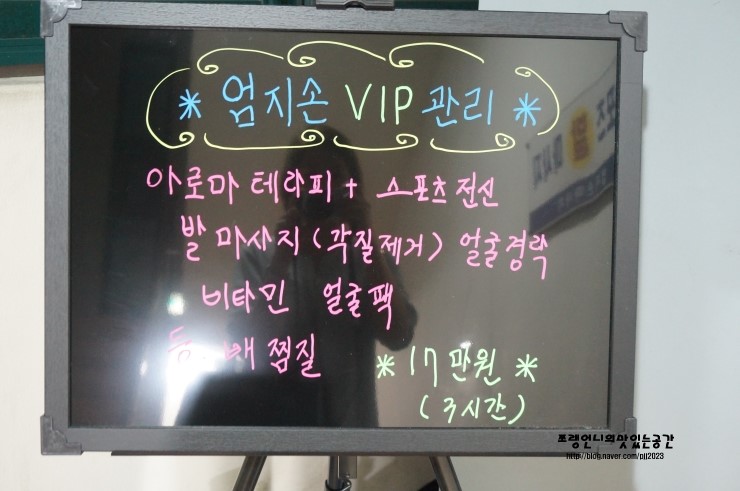 * 엄지손 VIP 관리 *
아로마 테라피 + 스포츠 전신
발 마사지 (각질제거) 얼굴경락
비타민 얼굴팩
등. 배 찜질
* 17만원 *
(3시간)
포랭언니의맛있는공간
http://blog.naver.com/pjj2023